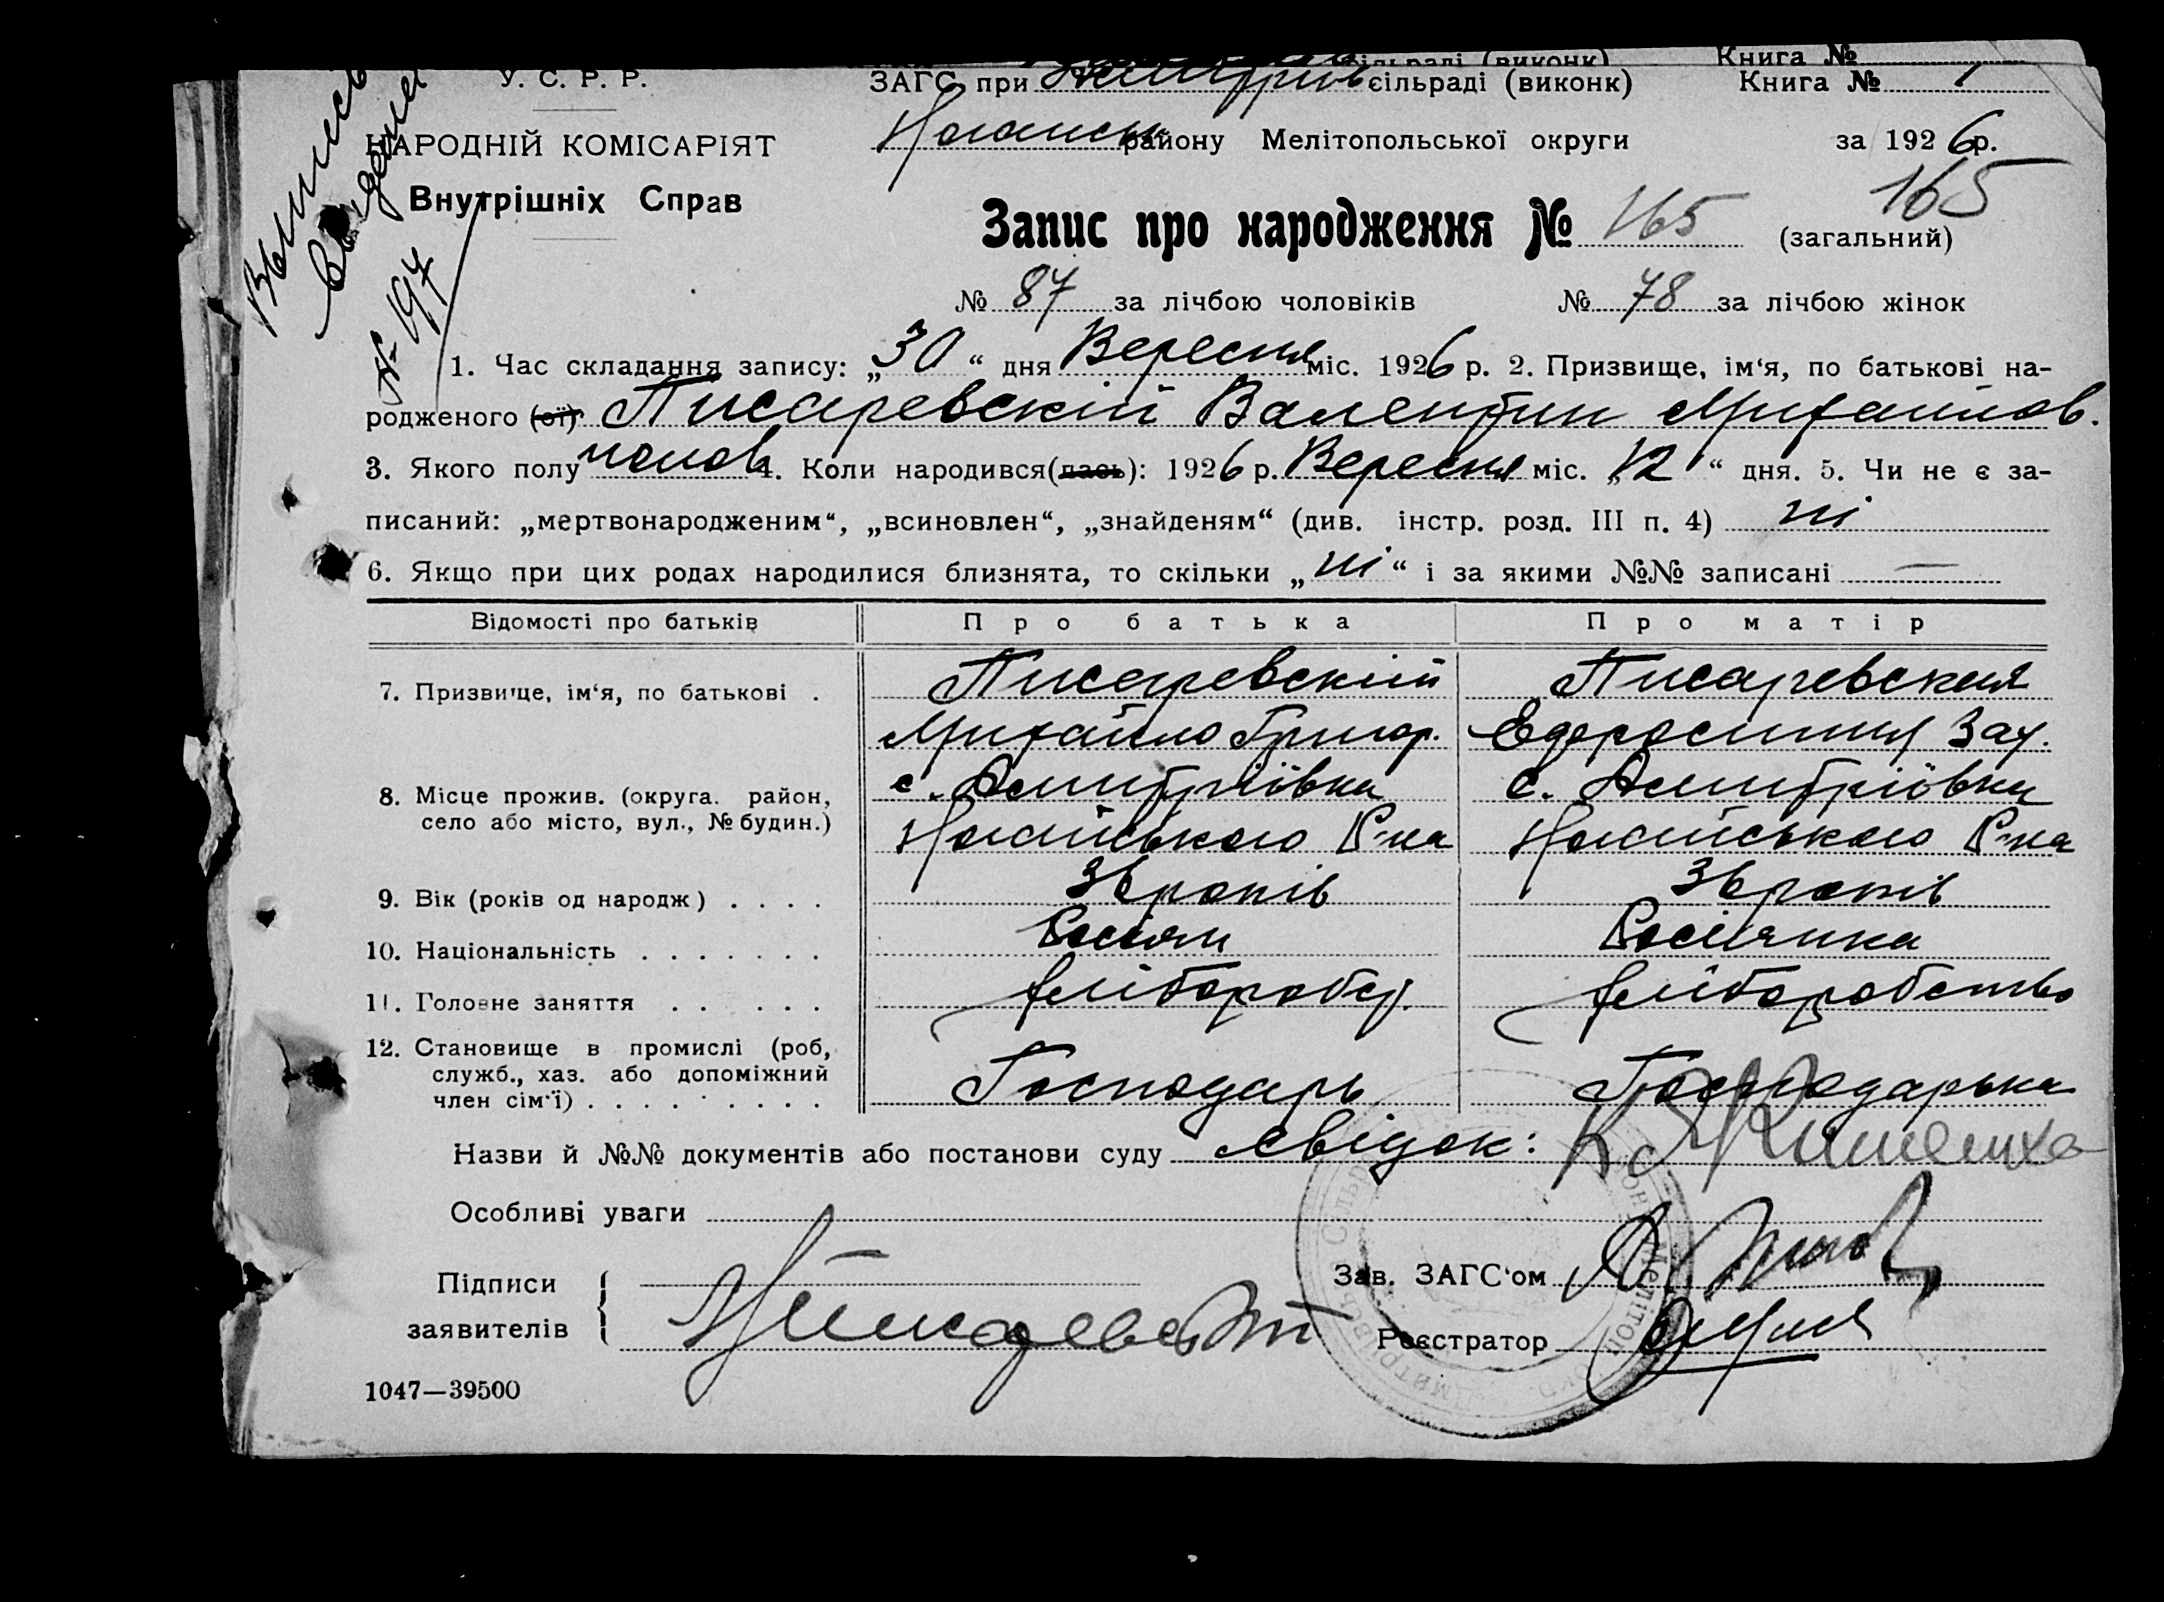 У. С. Р. Р.
НАРОДНІЙ КОМІСАРІЯТ
Внутрішніх Справ
Выпись
выдана
№ 197
Книга №
ЗАГС при Дмитрів сільраді (виконк) Книга № 1
Ногайськ району Мелітопольської округи за 1926 р.
165
Запис про народження № 165 (загальний)
№ 87 за лічбою чоловіків № 78 за лічбою жінок
1. Час складання запису: „30“ дня Вересня міс. 1926 р. 2. Призвище, ім‘я, по батькові на-
родженого (ої) Писаревскій Валентин Михайлов.
3. Якого полу чолов 4. Коли народився(лась): 1926 р. Вересня міс. „12“ дня. 5. Чи не є за-
писаний: „мертвонародженим“, „всиновлен“, „знайденям“ (див. інстр. розд. III п. 4) ні
6. Якщо при цих родах народилися близнята, то скільки „ні“ і за якими №№ записані —
Відомості про батьків Про батька Про матір
7. Призвище, ім‘я, по батькові . Писаревскій Писаревская
Михайло Григор. Зах.
8. Місце прожив. (округа. район, с. Дмитріївка с. Дмитріївка
село або місто, вул., № будин.) Ногайського Р-на Ногайського Р-на
9. Вік (років од народж) . . . . 36 років 36 років
10. Національність . . . . . . . Росіян Росіянка
11. Головне заняття . . . . . . хліборобст. хліборобство
12. Становище в промислі (роб, Господарь Господарька
служб., хаз. або допоміжний
член сім‘ї) . . . . . . . . .
Назви й №№ документів або постанови суду свідок:
Особливі уваги
Підписи Зав. ЗАГС‘ом
заявителів Реєстратор
1047—39500